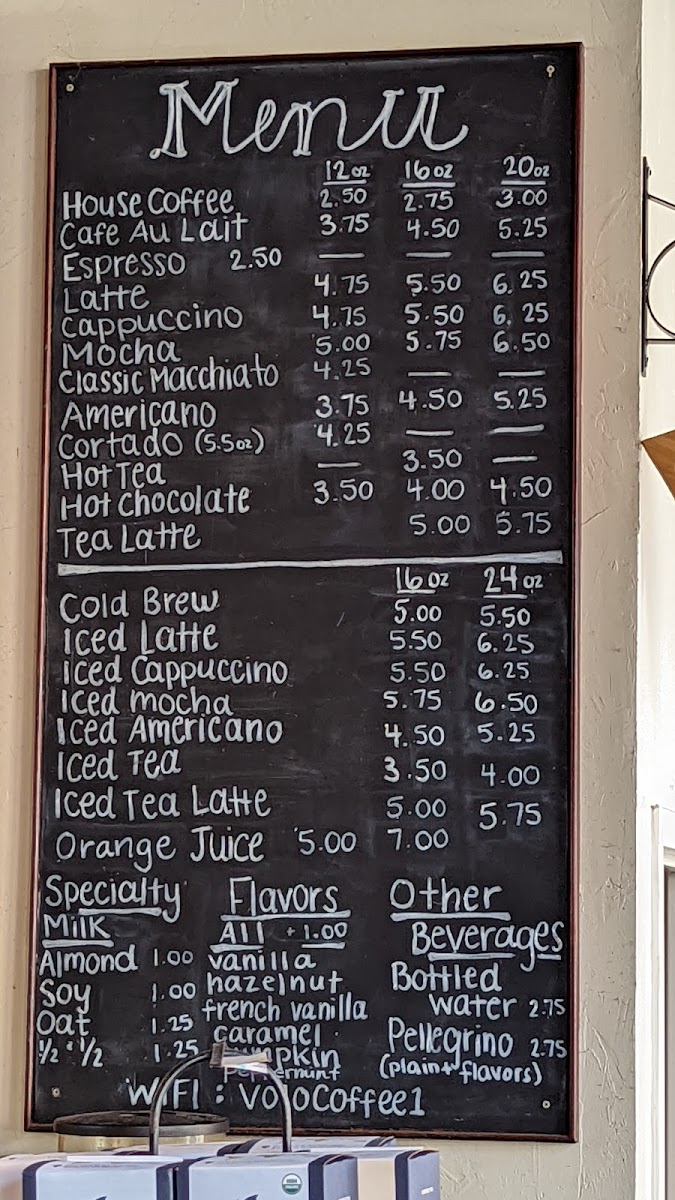 Menu
12oz 16oz 20oz
House Coffee 2.50 2.75 3.00
Cafe Au Lait 3.75 4.50 5.25
Espresso 2.50 — — —
Latte 4.75 5.50 6.25
Cappuccino 4.75 5.50 6.25
Mocha 5.00 5.75 6.50
Classic Macchiato 4.25 — —
Americano 3.75 4.50 5.25
Cortado (5.5oz) 4.25 — —
Hot Tea — 3.50 —
Hot Chocolate 3.50 4.00 4.50
Tea Latte 5.00 5.75
16oz 24oz
Cold Brew 5.00 5.50
Iced Latte 5.50 6.25
Iced Cappuccino 5.50 6.25
Iced Mocha 5.75 6.50
Iced Americano 4.50 5.25
Iced Tea 3.50 4.00
Iced Tea Latte 5.00 5.75
Orange Juice 5.00 7.00
Specialty
Milk
Almond 1.00
Soy 1.00
Oat 1.25
1/2 & 1/2 1.25
Flavors
All +1.00
vanilla
hazelnut
french vanilla
caramel
Other
Beverages
Bottled
water 2.75
Pellegrino 2.75
(plain + flavors)
WIFI :